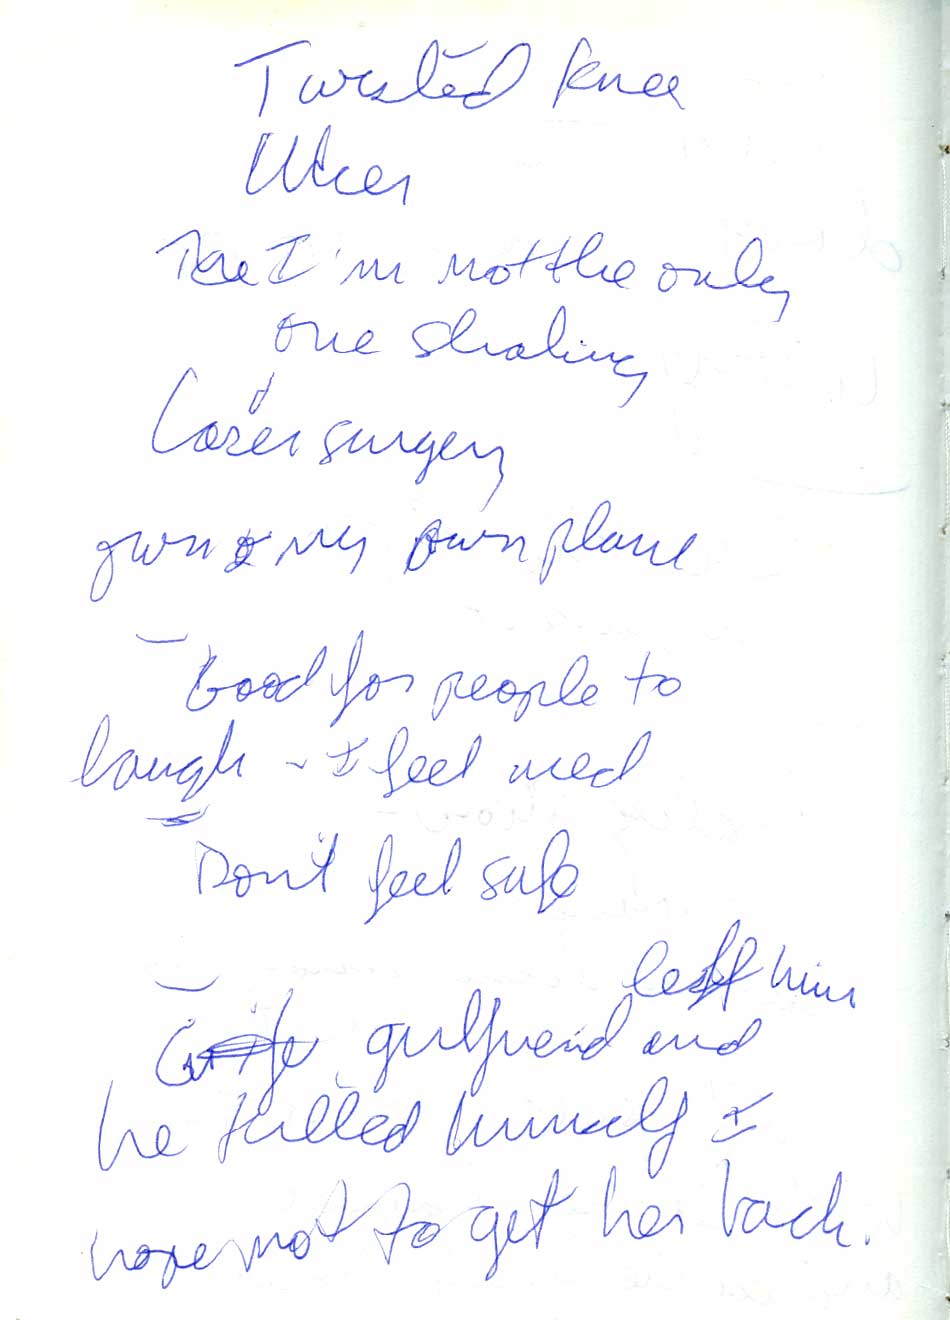 Twisted knee
Ulcer
I'm not the only
one shaking
Lazer surgery
own my own plane
- Good for people to
laugh - I feel need
- Don't feel safe
left him
- girlfriend and
he killed himself I
hope not to get her back.